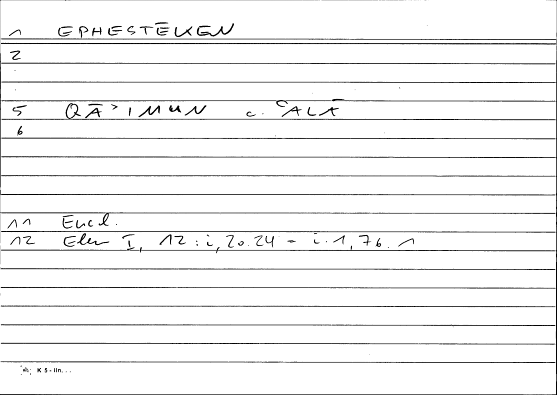 1 EPHESTĒKEN
2
5 QĀʾIMUN c. ʿALĀ
6
11 Eucl.
12 Elem I, 12 : i, 20.24 = i.1, 76.1
K 5 - lin...